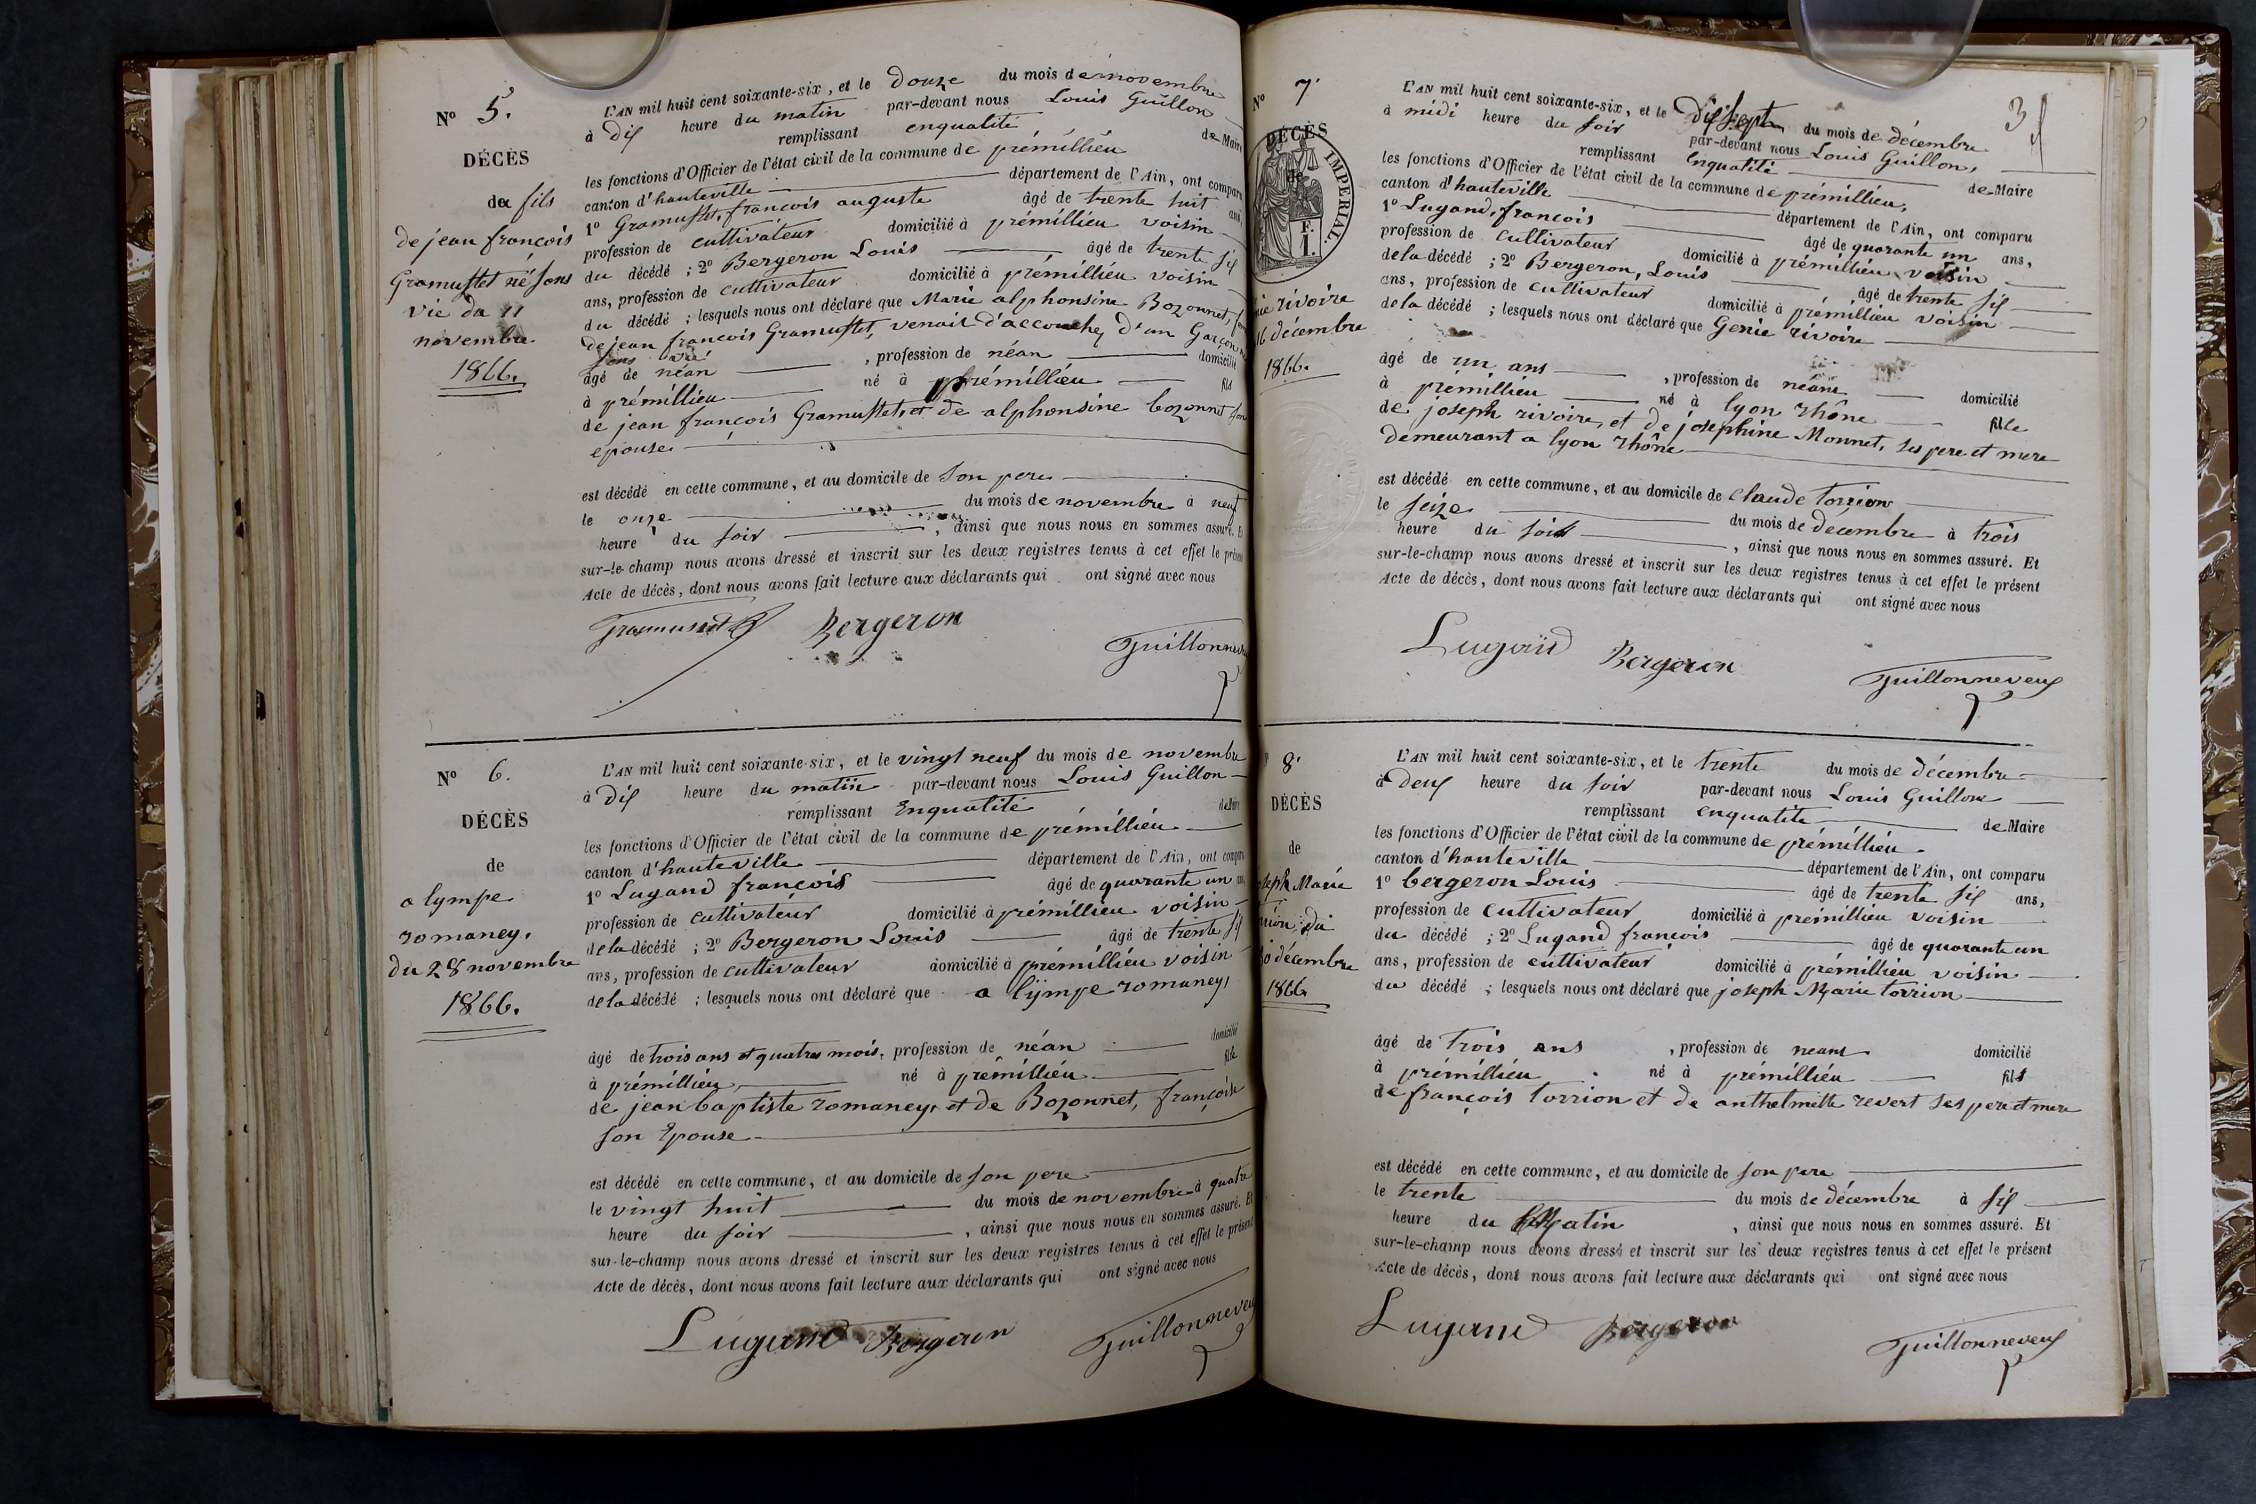 Nº 5.
DÉCÈS
du fils
de jean françois
Gramusset né sans
vie du 11
novembre
1866.
L'AN mil huit cent soixante-six, et le douze du mois de novembre
à dix heure du matin par-devant nous Louis Guillon
remplissant enqualité de Maire
les fonctions d'Officier de l'état civil de la commune de prémillieu
canton d'hauteville département de l'Ain, ont comparu
1º Gramusset, françois auguste âgé de trente huit ans,
profession de cultivateur domicilié à prémillieu voisin
du décédé ; 2º Bergeron Louis âgé de trente six
ans, profession de cultivateur domicilié à prémillieu voisin
du décédé ; lesquels nous ont déclaré que Marie alphonsine Bozonnet,
de jean françois Gramusset, venait d'accoucher d'un Garçon
sans vie
âgé de néan , profession de néan domicilié
à prémillieu né à prémillieu fils
de jean françois Gramusset, et de alphonsine bozonnet son
epouse
est décédé en cette commune, et au domicile de son pere
le onze du mois de novembre à neuf
heure du soir , ainsi que nous nous en sommes assuré. Et
sur-le-champ nous avons dressé et inscrit sur les deux registres tenus à cet effet le présent
Acte de décès, dont nous avons fait lecture aux déclarants qui ont signé avec nous
Gramusset Bergeron
Guillonneveu
Nº 6.
DÉCÈS
de
a lympe
romaney,
du 28 novembre
1866.
L'AN mil huit cent soixante-six, et le vingt neuf du mois de novembre
à dix heure du matin par-devant nous Louis Guillon
remplissant Enqualité de Maire
les fonctions d'Officier de l'état civil de la commune de prémillieu
canton d'hauteville département de l'Ain, ont comparu
1º Lugand françois âgé de quarante un ans
profession de cultivateur domicilié à prémillieu voisin
de la décédé ; 2º Bergeron Louis âgé de trente six
ans, profession de cultivateur domicilié à prémillieu voisin
de la décédé ; lesquels nous ont déclaré que a lijmpe romaney,
âgé de trois ans et quatres mois, profession de néan domicilié
à prémillieu, né à prémillieu fille
de jean baptiste romaney, et de Bozonnet, françoise
son Epouse
est décédé en cette commune, et au domicile de son pere
le vingt huit du mois de novembre à quatre
heure du soir , ainsi que nous nous en sommes assuré. Et
sur-le-champ nous avons dressé et inscrit sur les deux registres tenus à cet effet le présent
Acte de décès, dont nous avons fait lecture aux déclarants qui ont signé avec nous
Lugand Bergeron Guillonneveu
3
Nº 7.
DÉCÈS
de
IMPERIAL.
F.
1.
nie rivoire
16 décembre
1866.
L'AN mil huit cent soixante-six, et le dix sept du mois de décembre
à midi heure du soir par-devant nous Louis Guillon,
remplissant Enqualité de Maire
les fonctions d'Officier de l'état civil de la commune de prémillieu,
canton d'hauteville département de l'Ain, ont comparu
1º Lugand, françois âgé de quarante un ans,
profession de cultivateur domicilié à prémillieu voisin
de la décédé ; 2º Bergeron, Louis âgé de trente six
ans, profession de cultivateur domicilié à prémillieu voisin
de la décédé ; lesquels nous ont déclaré que Genie rivoire
âgé de un ans , profession de néant domicilié
à prémillieu né à lyon rhône fille
de joseph rivoire, et de joséphine Monnet, ses pere et mere
demeurant a lyon rhône
est décédé en cette commune, et au domicile de claude torrion
le seize du mois de decembre à trois
heure du soir , ainsi que nous nous en sommes assuré. Et
sur-le-champ nous avons dressé et inscrit sur les deux registres tenus à cet effet le présent
Acte de décès, dont nous avons fait lecture aux déclarants qui ont signé avec nous
Lugand Bergeron
Guillonneveu
8.
DÉCÈS
de
seph Marie
rrion du
30 décembre
1866
L'AN mil huit cent soixante-six, et le trente du mois de décembre
à deux heure du soir par-devant nous Louis Guillon
remplissant enqualité de Maire
les fonctions d'Officier de l'état civil de la commune de prémillieu
canton d'hauteville département de l'Ain, ont comparu
1º bergeron Louis âgé de trente six ans,
profession de cultivateur domicilié à prémillieu voisin
du décédé ; 2º Lugand françois âgé de quarante un
ans, profession de cultivateur domicilié à prémillieu voisin
du décédé ; lesquels nous ont déclaré que joseph Marie torrion
âgé de trois ans , profession de neant domicilié
à prémillieu né à prémillieu fils
de françois torrion et de anthelmette revert ses pere et mere
est décédé en cette commune, et au domicile de son pere
le trente du mois de décembre à six
heure du Matin , ainsi que nous nous en sommes assuré. Et
sur-le-champ nous avons dressé et inscrit sur les deux registres tenus à cet effet le présent
Acte de décès, dont nous avons fait lecture aux déclarants qui ont signé avec nous
Lugand Bergeron
Guillonneveu